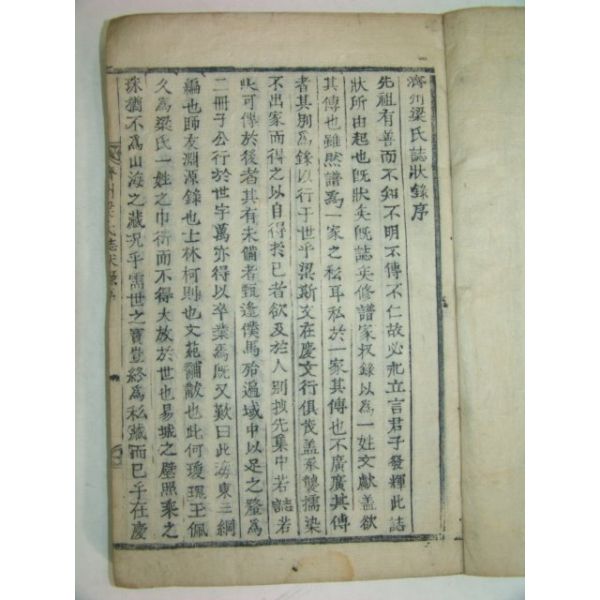 濟州梁氏誌狀錄序
先祖有善而不知不明不傳不仁故必永立言君子發輝此誌
狀所由起也旣狀矣旣誌矣修譜家收錄以爲一姓文獻盖欲
其傳也雖然譜爲一家之私耳私於一家其傳也不廣廣其傳
者其別爲錄以行于世乎梁斯文在慶文行俱茂盖承襲擩染
不出家而得之以自得於己者欲及於人別拔先集中若誌若
狀可傳於後者其有未備者甄逢僕馬殆遍域中以足之發爲
二冊子公行於世宇萬亦得以卒業焉旣又歎曰此海東三綱
編也師友淵源錄也士林柯則也文苑黼黻也此何瓊瑰玉佩
久爲梁氏一姓之巾衍而不得大放於世也易城之壁照乘之
珠猶不爲山海之藏况乎需世之寶豈終爲私藏而已乎在慶
濟州梁氏誌狀錄序